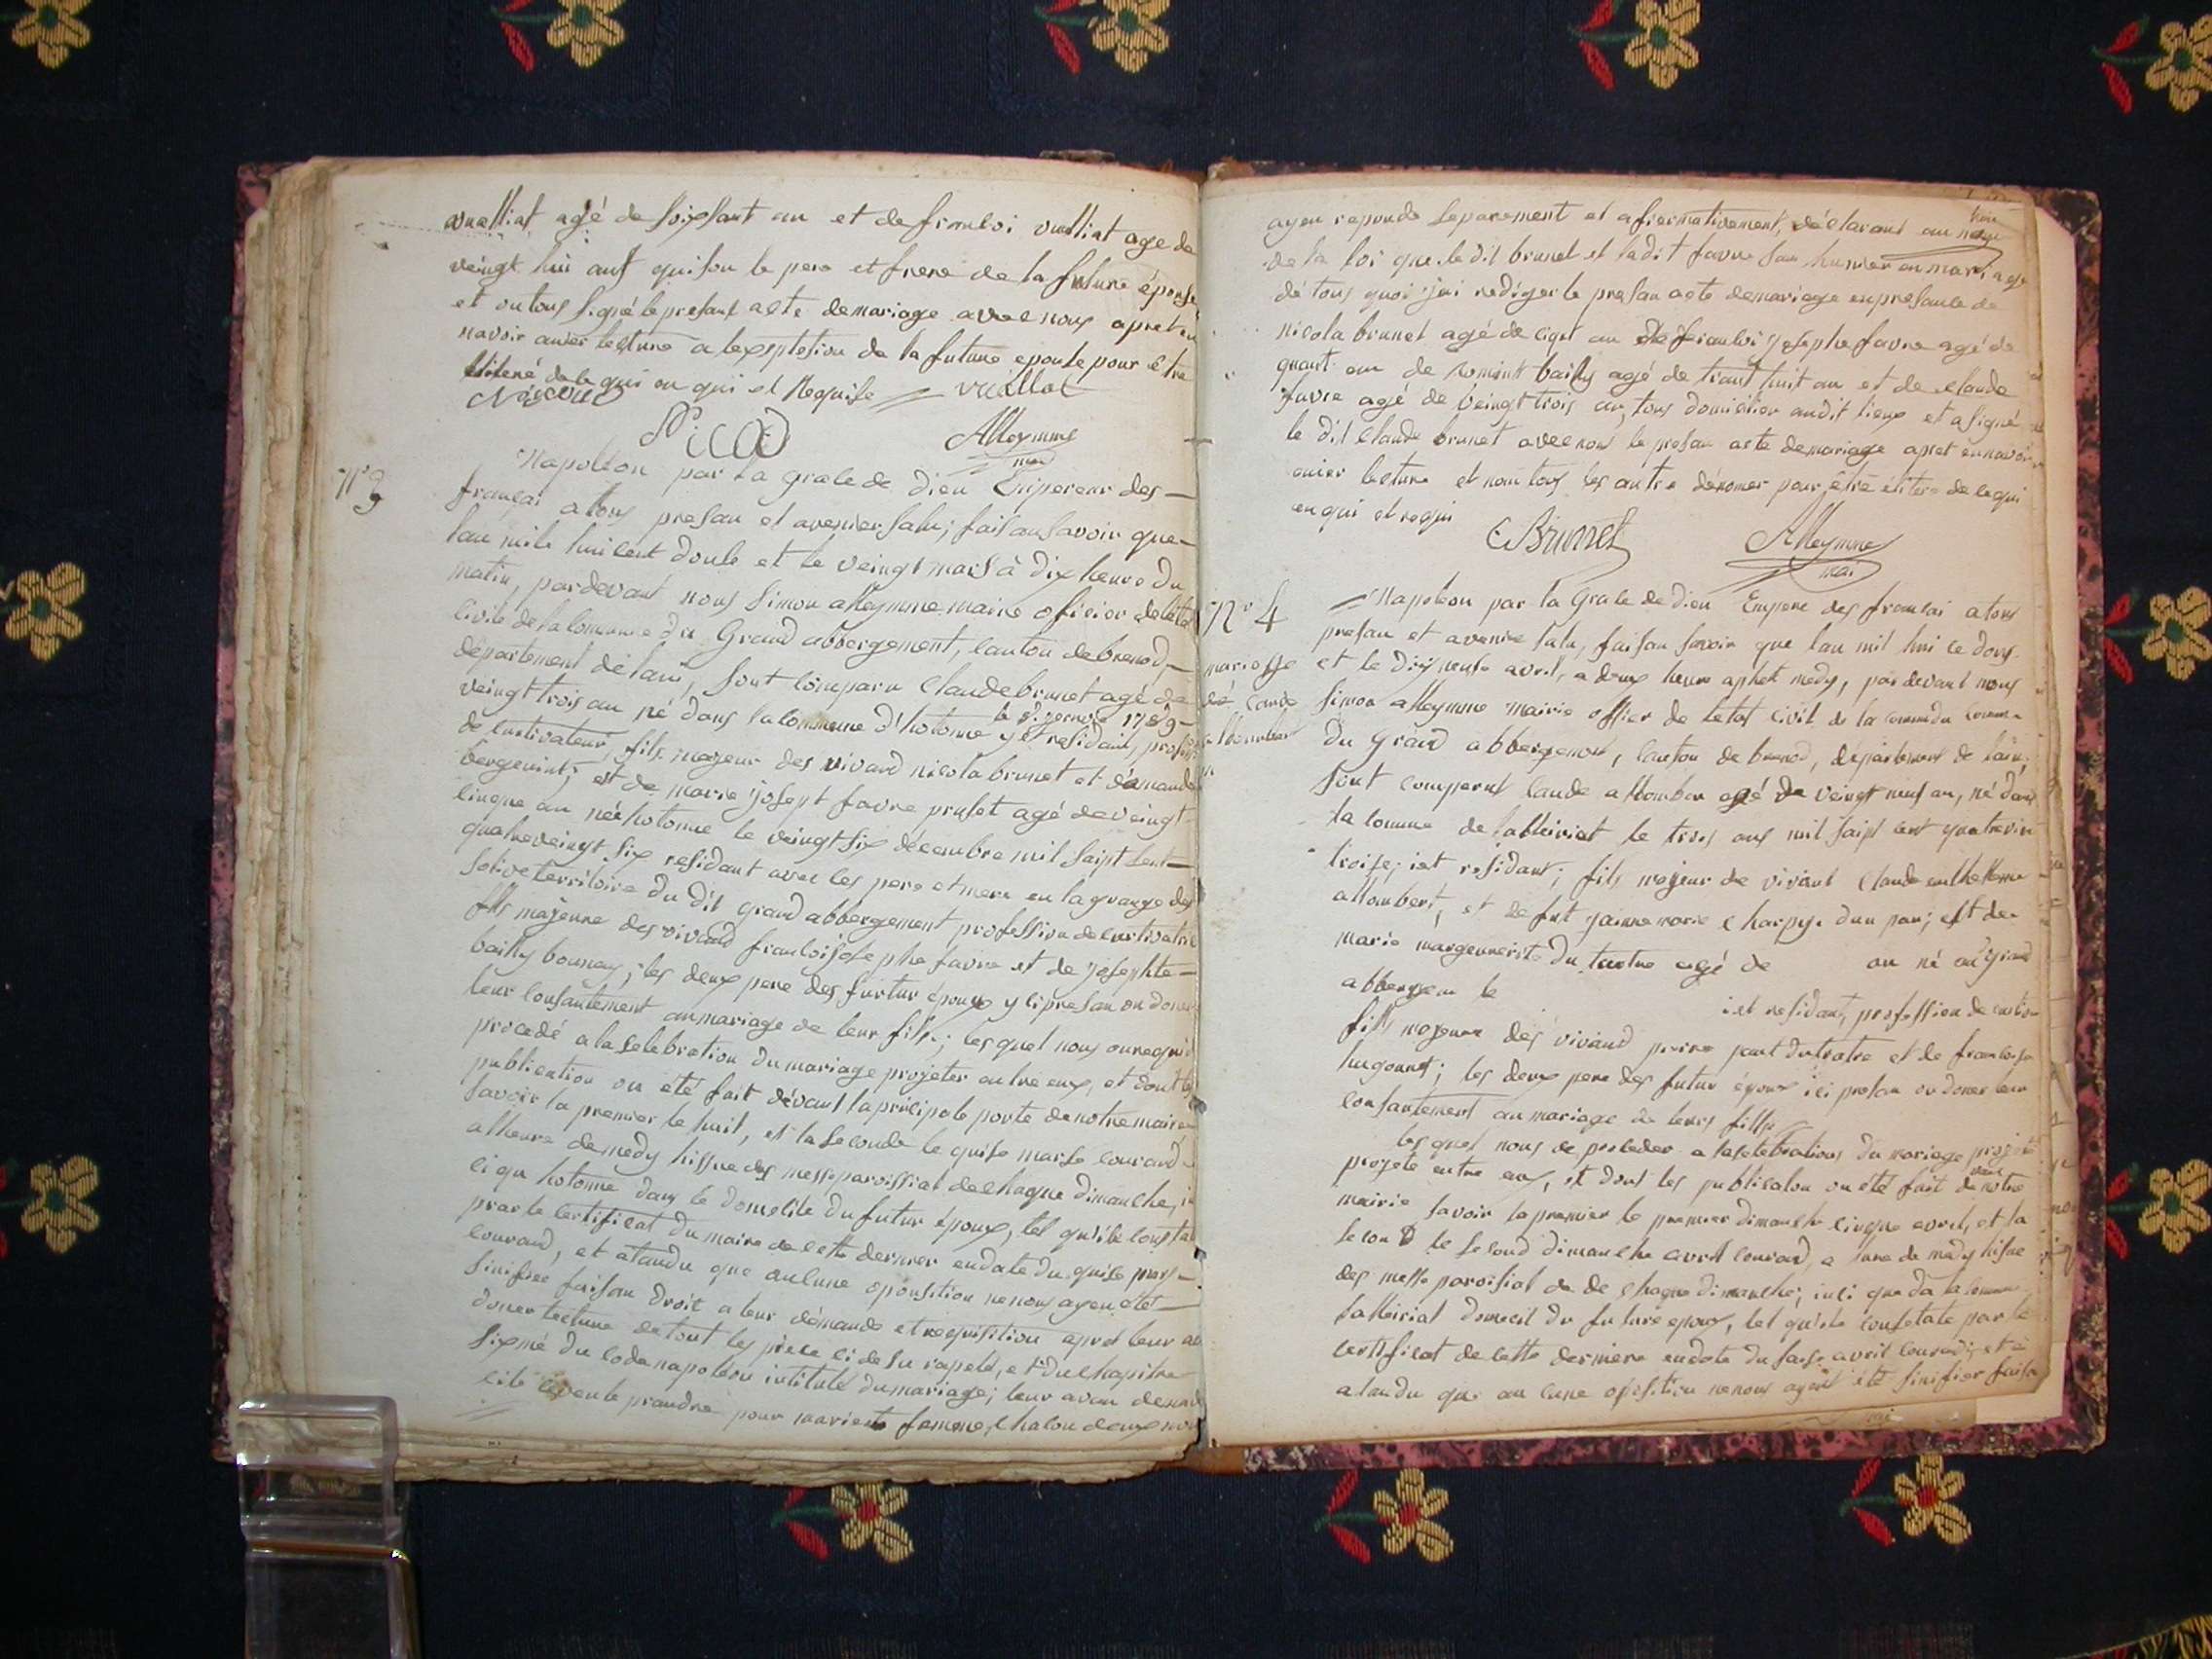 vuilliat agé de soixsant an et de francoi vuilliat age de
veingt hui ant qui son le pere et frere de la future épouse
et on tous signé le presant acte de mariage avec nous apret en
navoir ouier lecture a lexseptesion de la future epouse pour etre
de le qui an qui et Requise vuillat
N° 3
Napoléon par la grace de Dieu Empereur des
francai a tous presan et avenier salu; faisan savoir que
lan mile huicent doule et le veingt mars à dix heure du
matin, pardevant nous Simon alleymme maire oficier de létat
civile de la comune du Grand abbergement, canton de brenod,
département de lain, sont comparu Claude brunet agé de
veingt trois an né dans la commune d'hotonne le 8 1789 y et residant, profesion
de cultivateur, fils majeur des vivand nicola brunet et démande
bergeniat; et de marie josept favre prufet agé de veingt
cinque an née hotonne le veingt six décembre mil saipt sent
quatreveingt six residant avec les pere et mere en la grange des
solive territoire du dit grand abbergement profession de cultivatrie
fills majeure des vivand francoi josephe favre et de josephte
bailly bounay; les deux pere des furtur époux y ci presan on doner
leur consantement au mariage de leur fils; lesquel nous on requi
procedé a la selebration du mariage projeter entre eux, et dont les
publication on été fait dévant la principale porte de notre mairie
savoir la premier le huit, et la seconde le quise marse courand
a lheure de medy hissue des messe paroissial de chaque dimanche, i
ci qu hotonne dans le domesile du futur époux, tel qu'ile constat
prar le certificat du maire de cette dernier en date du quise mars
courand, et atandu que aulune oposition ne nous ayen été
sinifiee faisan droit a leur démande et requisition apret leur av
doner lecture de tout les piese ci desu rapelé, et du chapitre
sixme du code napoléon intitulé du mariage; leur avon demand
sile veule prandre pour mari et famme, chalon deux nous
ayen reponde separement et afiermativement, déclaront au nom
de la loi que le dit brunet et ladit favre son hunier en mariage
dé tous quoi jai rediger le presan acte de mariage en presance de
nicola brunet agé de ciqet an de francoi josephe favre agé de
quant an de romint bailly agé de trant huit an et de claude
favre agé de veingt trois an, tous domicilier au dit lieux et a signé
le dit Claude brunet avec nous le presan acte de mariage apret en navoir
ouier lecture et nom tous les autre dénomer pour étre éliteré de ce qui
en qui et requi
C Brunet Alleymme
mai
N° 4
mariage
de Caude
allombert
Napoléon par la Grace de Dieu Empere des francai a tous
presan et avenire salu, faisan savoir que lan mil hui ce dous
et le dix neufe avril, a deux heure aphet medy, par devant nous
Simon alleymme mairie officer de letat civil de la commun comme
du Grand abbergement, canton de brenod, departement de lain,
sont comparut Caude allomber agé de veingt neuf an, né dans
la commune de lalleiriat le trois ous mil saipt cent quatrevin
troise; i et residant; fils majeur de vivant Claude anthelleme
allombert, et de fut jeanne marie charpy. dun par; est de
marie margueneriste du tartre agé de an né au Grand
abbergem le i et residant, profession de cultiv
fills majeure des vivand pierre du tartre et de francoise
hugonnet; les deux pere des futur époux ici presan on doner leur
consantement au mariage de leurs fills
lesquel nous de proceder a la selebrations du mariage projeté
projeté entre eux, et dont les publication on eté fait devant notre
mairie savoir la premier le premier dimanche cinque avril, et la
second le second dimanche avril courand, a lure de medy hisue
des messe paroisial de de chaque dimanche; inci que da la commune
lalleiriat domecil du future epoux, tel qu'ile consetate par le
certificat de cette derniere en date du saise avril courand; et à
atandu que au cune oposition ne nous ayent ete sinifier faisan